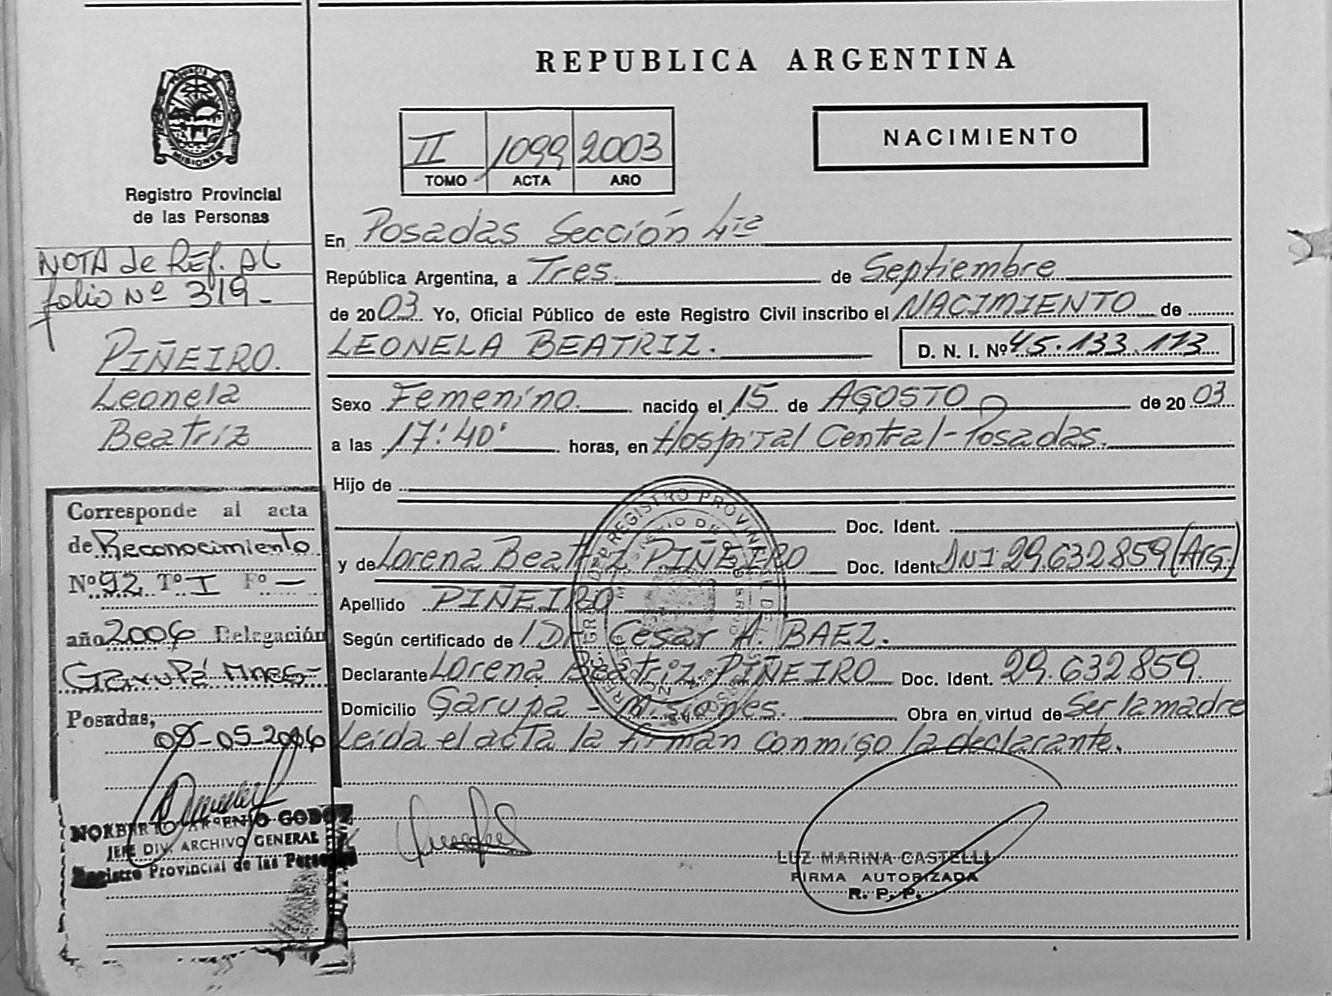 REPUBLICA ARGENTINA
PROVINCIA DE
MISIONES
Registro Provincial
de las Personas
II 1099 2003
TOMO ACTA AÑO
NACIMIENTO
NOTA de Ref. AL
folio Nº 319-
PIÑEIRO.
Leonela
Beatriz
En Posadas Sección 4ta
República Argentina, a Tres. de Septiembre
de 2003. Yo, Oficial Público de este Registro Civil inscribo el NACIMIENTO de
LEONELA BEATRIZ. D. N. I. Nº 45.133.173
Sexo Femenino. nacido el 15 de AGOSTO de 2003.
a las 17:40' horas, en Hospital Central-Posadas.
Hijo de
Doc. Ident.
y de Lorena Beatriz PIÑEIRO Doc. Ident. DNI 29.632859 (Arg.)
Apellido PIÑEIRO
Según certificado de Cesar A. BAEZ.
Declarante Lorena Beatriz PIÑEIRO Doc. Ident. 29.632859.
Domicilio Garupa - Misiones. Obra en virtud de Ser la madre
Leída el acta la firman conmigo la declarante.
Corresponde al acta
de Reconocimiento
Nº 92 Tº I Fº -
año 2006 Delegación
Garupá Mnes-
Posadas,
08-05-2006
NORBERTO ARSENIO GODOZ
JEFE DIV. ARCHIVO GENERAL
Registro Provincial de las Personas
REGISTRO PROVINCIAL DE
LUZ MARINA CASTELLI
FIRMA AUTORIZADA
R. P. P.